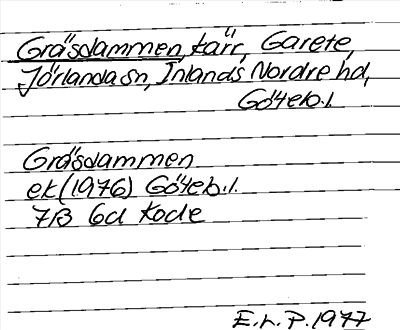 Gräsdammen, kärr, Garete,
Jörlanda sn, Inlands Nordre hd,
Göteb.l.
Gräsdammen
ek (1976) Göteb.l.
7B 6d Kode
E.L.P. 1977